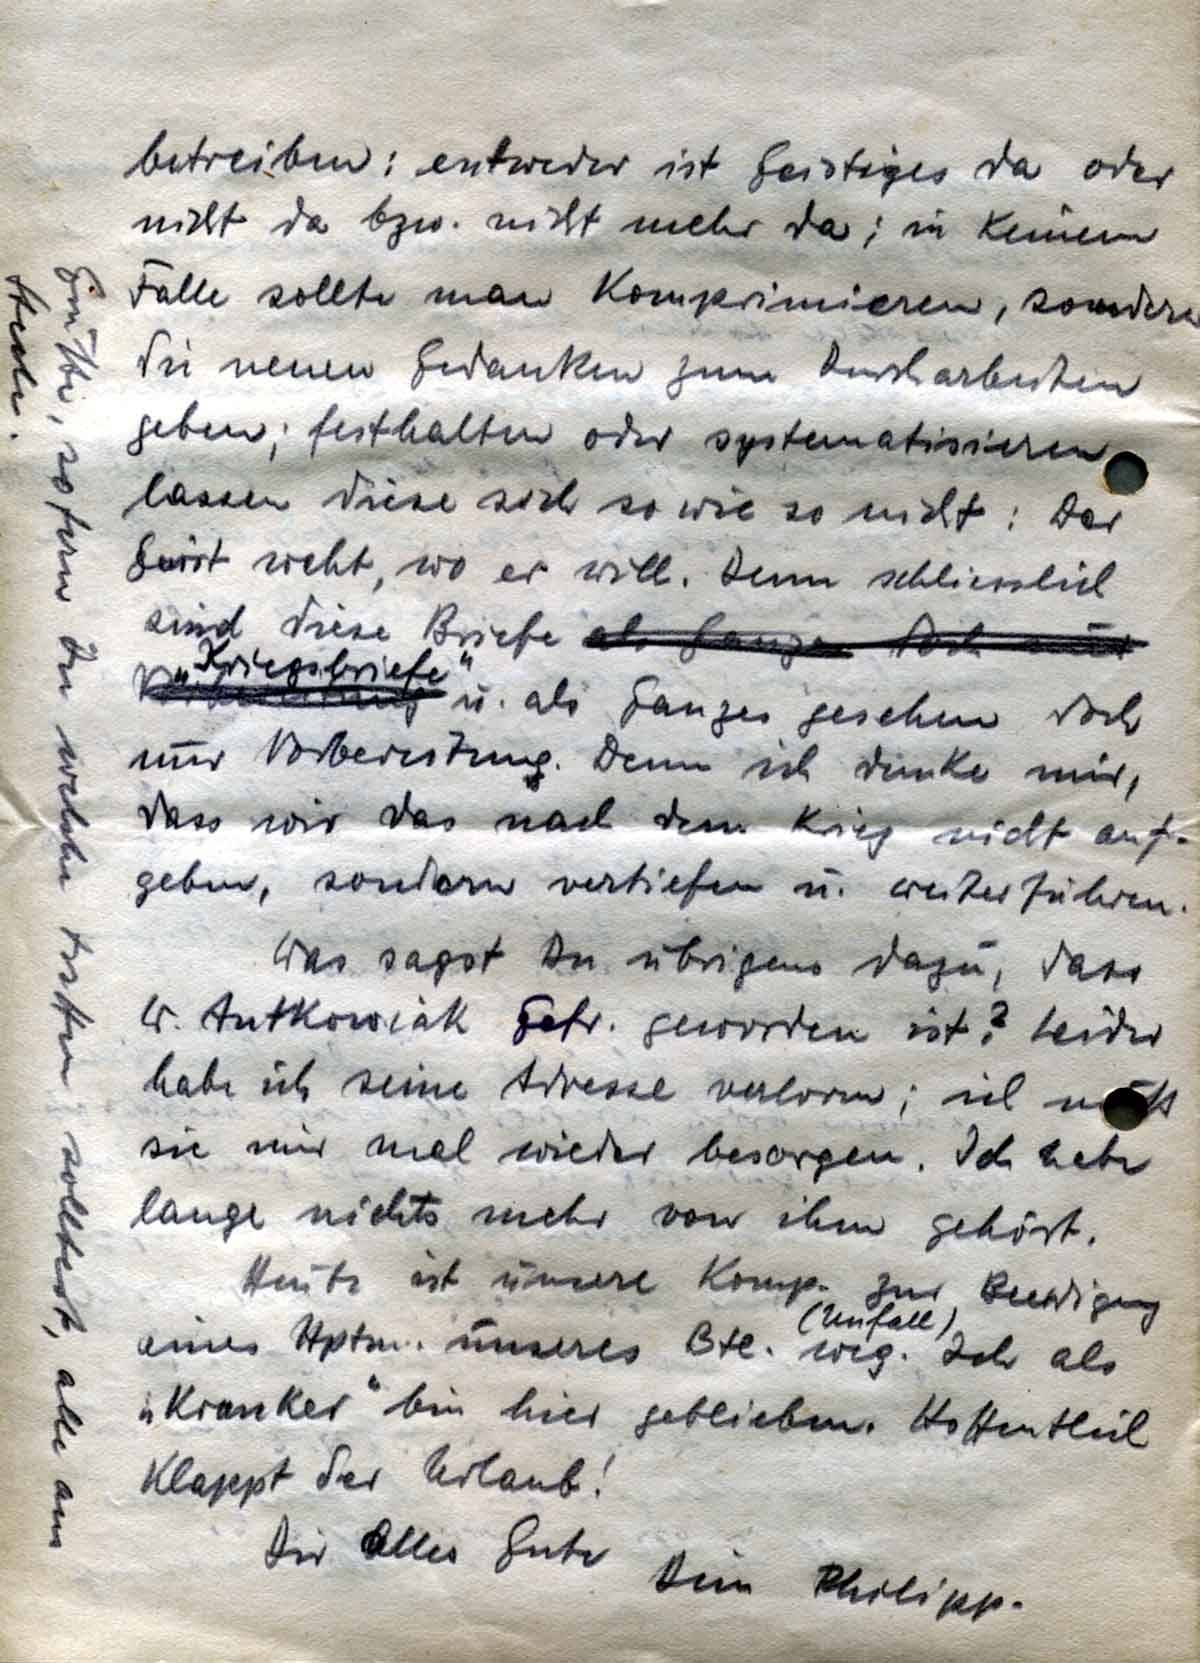 betreiben: entweder ist Geistiges da oder
nicht da bzw. nicht mehr da; in keinem
Falle sollte man komprimieren, sondern
die neuen Gedanken zum Durcharbeiten
geben; festhalten oder systematisieren
lassen diese sich so wie so nicht: Der
Geist weht, wo er will. Denn schliesslich
sind diese Briefe als Ganzes doch nur
„Kriegsbriefe“
Vorbereitung u. als Ganzes gesehen doch
nur Vorbereitung. Denn ich denke mir,
dass wir das nach dem Krieg nicht auf-
geben, sondern vertiefen u. weiterführen.
Was sagst Du übrigens dazu, dass
W. Antkowiak Gefr. geworden ist? Leider
habe ich seine Adresse verloren; ich muss
sie mir mal wieder besorgen. Ich habe
lange nichts mehr von ihm gehört.
Heute ist unsere Komp. zur Beerdigung
(Unfall)
eines Hptm. unseres Btl. weg. Ich als
„Kranker“ bin hier geblieben. Hoffentlich
klappt der Urlaub!
Dir alles Gute
Dein Philipp.
Grüsse, sofern Du welche treffen solltest, alle am